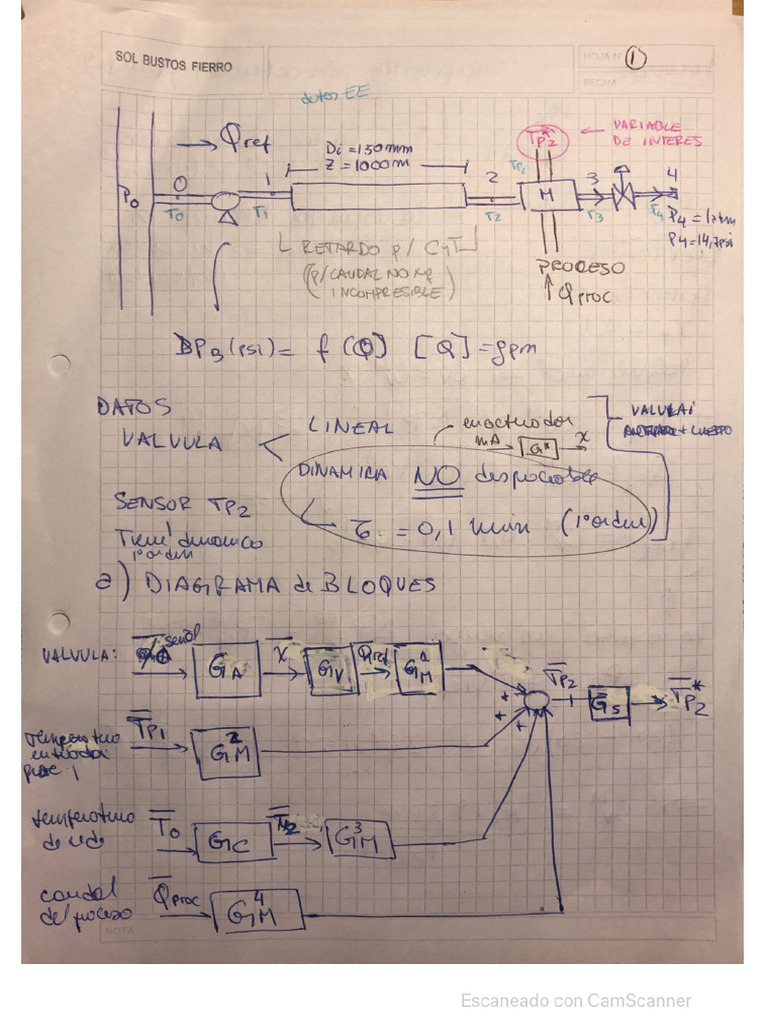 SOL BUSTOS FIERRO
HOJA Nº 1
FECHA
datos EE
Qref
Di = 130mm
Z = 1000m
TP2*
← VARIABLE
DE INTERES
P0
0
1
2
TP1
M
3
4
T0
T1
T2
T3
T4
P4 = 1atm
P4 = 14,7psi
RETARDO p/ C y T
(p/CAUDAL NO xq
INCOMPRESIBLE)
PROCESO
↑ Qproc
DPB (psi) = f (Q) [Q] = gpm
DATOS
VALVULA
LINEAL
en actuador
mA → G* → x
VALVULA:
+ CUERPO
DINAMICA NO despreciable
SENSOR TP2
Tiene dinamica
1º orden
τ = 0,1 min (1º orden)
a) DIAGRAMA de BLOQUES
VALVULA:
señal
GA
X
GV
Qref
GM1
TP2
GS
TP2*
+
+
+
+
temperatura
entrada
proc. 1
TP1
GM2
temperatura
de red
T0
GC
T2
GM3
caudal
del proceso
Qproc
GM4
NOTA
Escaneado con CamScanner